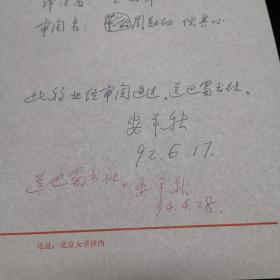 审阅者：周勋初 倪其心
此稿业经审阅通过，送巴蜀书社。
安平秋
92.6.17.
送巴蜀书社。安平秋
94.4.28.
地址：北京大学校内